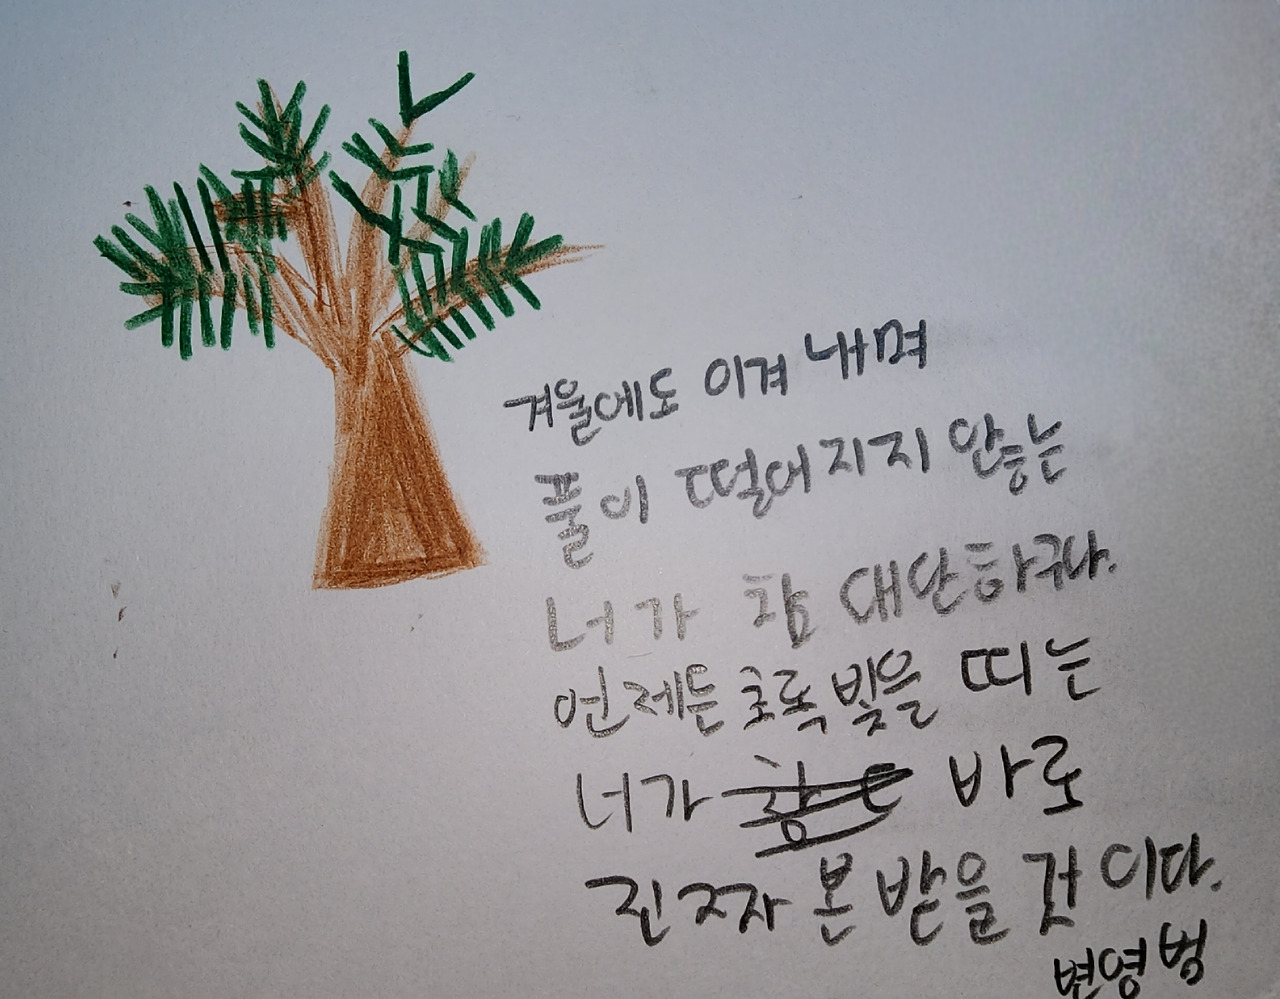 겨울에도 이겨 내며
풀이 떨어지지 안흥는
너가 참 대단하구나.
언제든 초록 빛을 띠는
너가 바로
진짜 본 받을 것 이다.
변영범